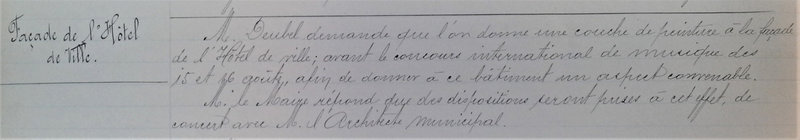 Façade de l'Hôtel
de Ville.
M. Deubel demande que l'on donne une couche de peinture à la façade
de l'Hôtel de ville; avant le concours international de musique des
15 et 16 août, afin de donner à ce bâtiment un aspect convenable.
M. le Maire répond que des dispositions seront prises à cet effet, de
concert avec M. l'Architecte municipal.